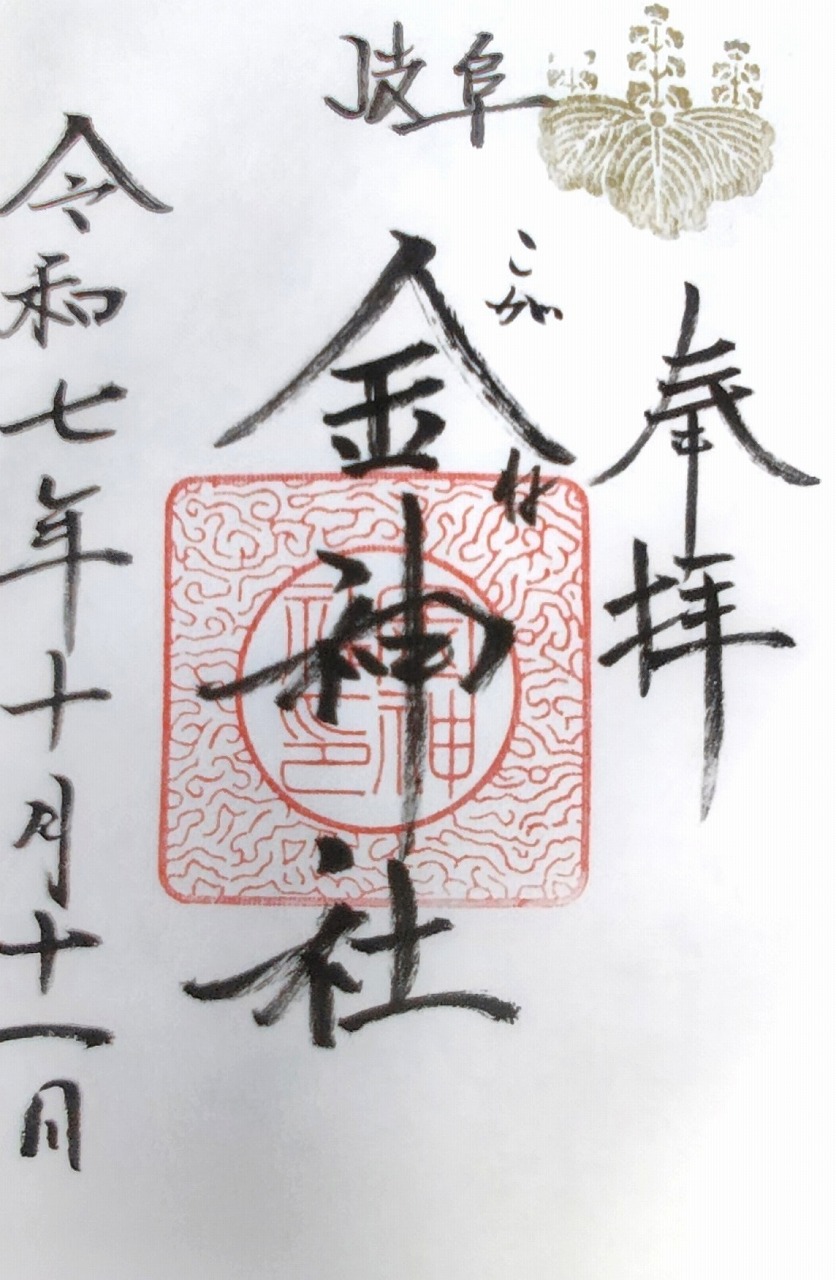 岐阜
奉拝
こがね
金神社
令和七年十月十一日